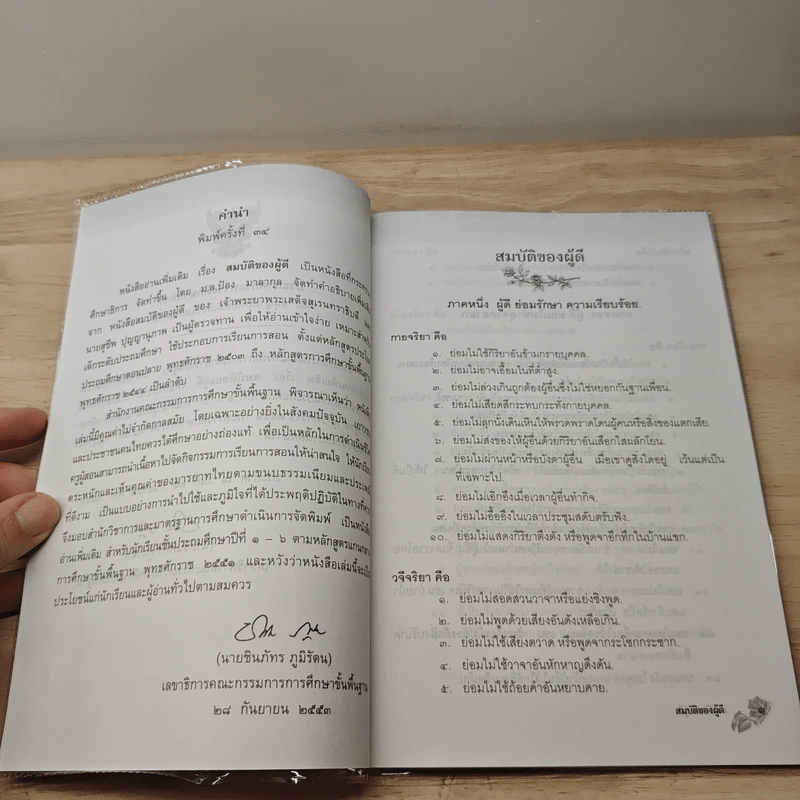 คำนำ
พิมพ์ครั้งที่ ๓๔
หนังสืออ่านเพิ่มเติม เรื่อง สมบัติของผู้ดี เป็นหนังสือที่กระทรวง
ศึกษาธิการ จัดทำขึ้น โดย ม.ล.ป้อง มาลากุล จัดทำคำอธิบายเพิ่มเติม
จาก หนังสือสมบัติของผู้ดี ของ เจ้าพระยาพระเสด็จสุเรนทราธิบดี และ
นายสุชีพ ปุญญานุภาพ เป็นผู้ตรวจทาน เพื่อให้อ่านเข้าใจง่าย เหมาะสำหรับ
เด็กระดับประถมศึกษา ใช้ประกอบการเรียนการสอน ตั้งแต่หลักสูตรประโยค
ประถมศึกษาตอนปลาย พุทธศักราช ๒๕๐๓ ถึง หลักสูตรการศึกษาขั้นพื้นฐาน
พุทธศักราช ๒๕๔๔ เป็นลำดับ
สำนักงานคณะกรรมการการศึกษาขั้นพื้นฐาน พิจารณาเห็นว่า หนังสือ
เล่มนี้มีคุณค่าไม่จำกัดกาลสมัย โดยเฉพาะอย่างยิ่งในสังคมปัจจุบัน เยาวชน
และประชาชนคนไทยควรได้ศึกษาอย่างถ่องแท้ เพื่อเป็นหลักในการดำเนินชีวิต
ครูผู้สอนสามารถนำเนื้อหาไปจัดกิจกรรมการเรียนการสอนให้น่าสนใจ ให้นักเรียน
ตระหนักและเห็นคุณค่าของมารยาทไทยตามขนบธรรมเนียมและประเพณี
ที่ดีงาม เป็นแบบอย่างการนำไปใช้และภูมิใจที่ได้ประพฤติปฏิบัติในทางที่ควร
จึงมอบสำนักวิชาการและมาตรฐานการศึกษาดำเนินการจัดพิมพ์ เป็นหนังสือ
อ่านเพิ่มเติม สำหรับนักเรียนชั้นประถมศึกษาปีที่ ๑ – ๖ ตามหลักสูตรแกนกลาง
การศึกษาขั้นพื้นฐาน พุทธศักราช ๒๕๕๑ และหวังว่าหนังสือเล่มนี้จะเป็น
ประโยชน์แก่นักเรียนและผู้อ่านทั่วไปตามสมควร
(นายชินภัทร ภูมิรัตน)
เลขาธิการคณะกรรมการการศึกษาขั้นพื้นฐาน
๒๘ กันยายน ๒๕๕๓
สมบัติของผู้ดี
ภาคหนึ่ง ผู้ดี ย่อมรักษา ความเรียบร้อย
กายจริยา คือ
๑. ย่อมไม่ใช้กิริยาอันข้ามกรายบุคคล.
๒. ย่อมไม่อาจเอื้อมในที่ต่ำสูง.
๓. ย่อมไม่ล่วงเกินถูกต้องผู้อื่นซึ่งไม่ใช่หยอกกันฐานเพื่อน.
๔. ย่อมไม่เสียดสีกระทบกระทั่งกายบุคคล.
๕. ย่อมไม่ลุกนั่งเดินเหินให้พรวดพราดโดนผู้คนหรือสิ่งของแตกเสีย.
๖. ย่อมไม่ส่งของให้ผู้อื่นด้วยกิริยาอันเสือกไสผลักโยน.
๗. ย่อมไม่ผ่านหน้าหรือบังตาผู้อื่น เมื่อเขาดูสิ่งใดอยู่ เว้นแต่เป็น
ที่เฉพาะไป.
๘. ย่อมไม่เอิกอึงเมื่อเวลาผู้อื่นทำกิจ.
๙. ย่อมไม่อื้ออึงในเวลาประชุมสดับตรับฟัง.
๑๐. ย่อมไม่แสดงกิริยาตึงตัง หรือพูดจาอึกทึกในบ้านแขก.
วจีจริยา คือ
๑. ย่อมไม่สอดสวนวาจาหรือแย่งชิงพูด.
๒. ย่อมไม่พูดด้วยเสียงอันดังเหลือเกิน.
๓. ย่อมไม่ใช้เสียงตวาด หรือพูดจากระโชกกระชาก.
๔. ย่อมไม่ใช้วาจาอันหักหาญดึงดัน.
๕. ย่อมไม่ใช้ถ้อยคำอันหยาบคาย.
สมบัติของผู้ดี ๑